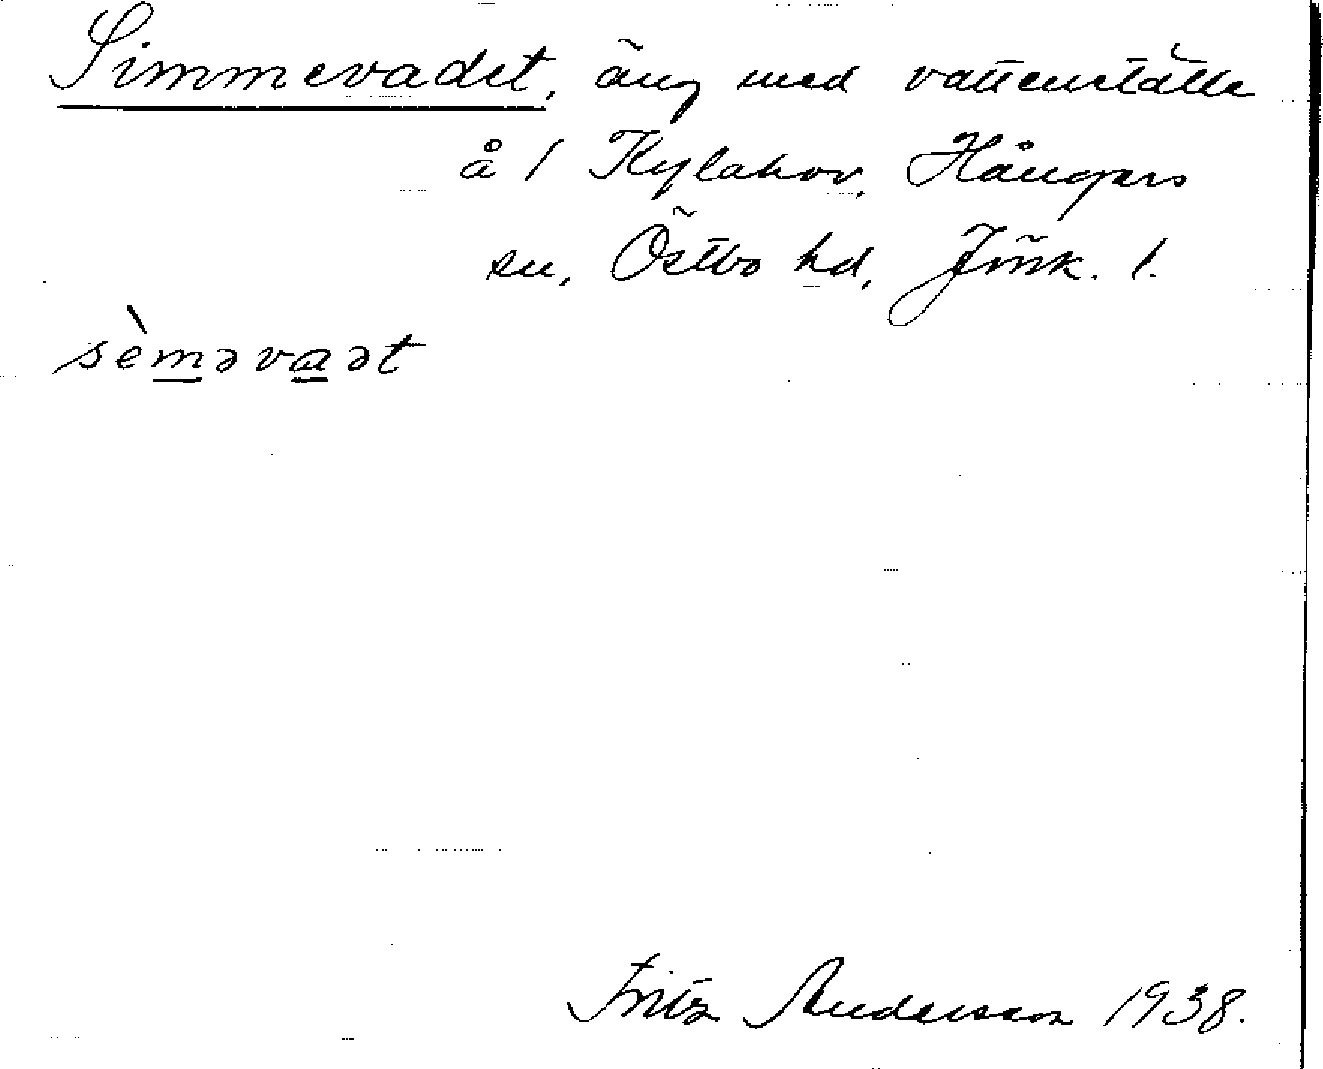 Simmevadet, äng med vattenställe
å 1 Kylahov, Hångers
sn, Östbo hd, Jönk. l.
sèməvaət
Fritz Andersson 1938.